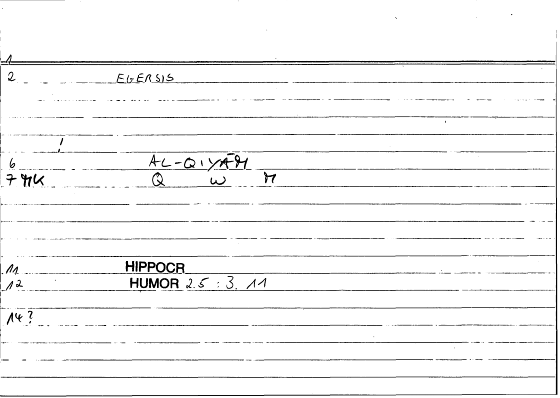 1
2 EGERSIS
!
6 AL-QIYĀM
7 MK Q W M
11 HIPPOCR
12 HUMOR 2.5 : 3. 11
14?